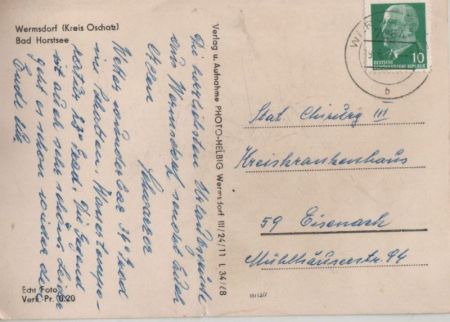 Wermsdorf (Kreis Oschatz)
Bad Horstsee
Die herzlichsten Urlaubsgrüße
aus Wermsdorf sendet Euch
Schwarzer
Wetter wunderbar 31 Grad
im Schatten, Wassertempe-
ratur 23 Grad. Die Gegend
ist auch sehr schön. Leider
geht es schon wieder dem
Ende
Echt Foto
Verk.-Pr. 0.20
Verlag u. Aufnahme PHOTO-HELBIG Wermsdorf III/24/11 L 34/68
10
DEUTSCHE
DEMOKRATISCHE REPUBLIK
b
Stat. Chirurg III
Kreiskrankenhaus
59 Eisenach
Mühlhäuserstr. 94